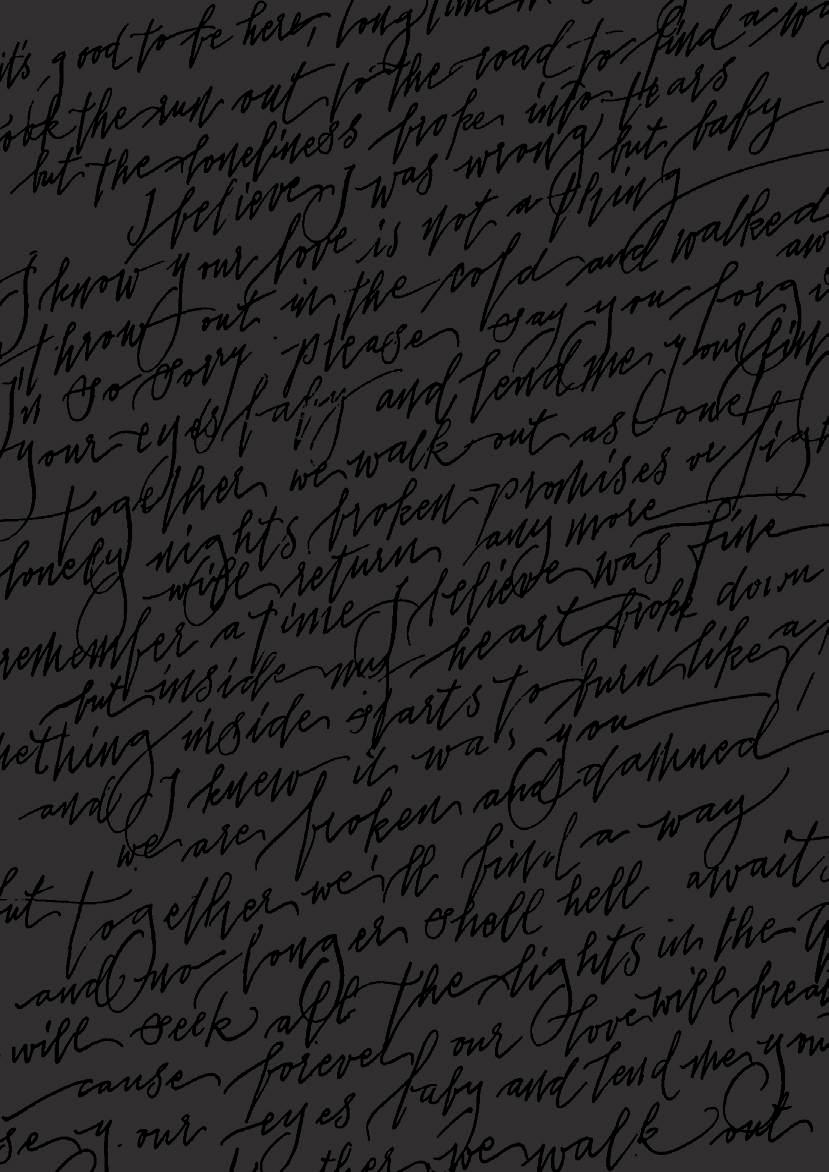 it's good to be here, long time
the run out to the road to find a
but the loneliness broke into tears
I believe I was wrong but baby
I know your love is not a thing
throw out in the cold and walked
I'm so sorry please say you
your eyes baby and lend me your
together we walk out as one
lonely nights broken promises or
will return any more
remember a time I believe was fine
but inside my heart broke down
inside starts to turn like a
and I knew it was you
we are broken and damned
together we'll find a way
and no longer shall hell await
will seek all the lights in the
cause forever our love will
your eyes baby and lend me your
we walk out